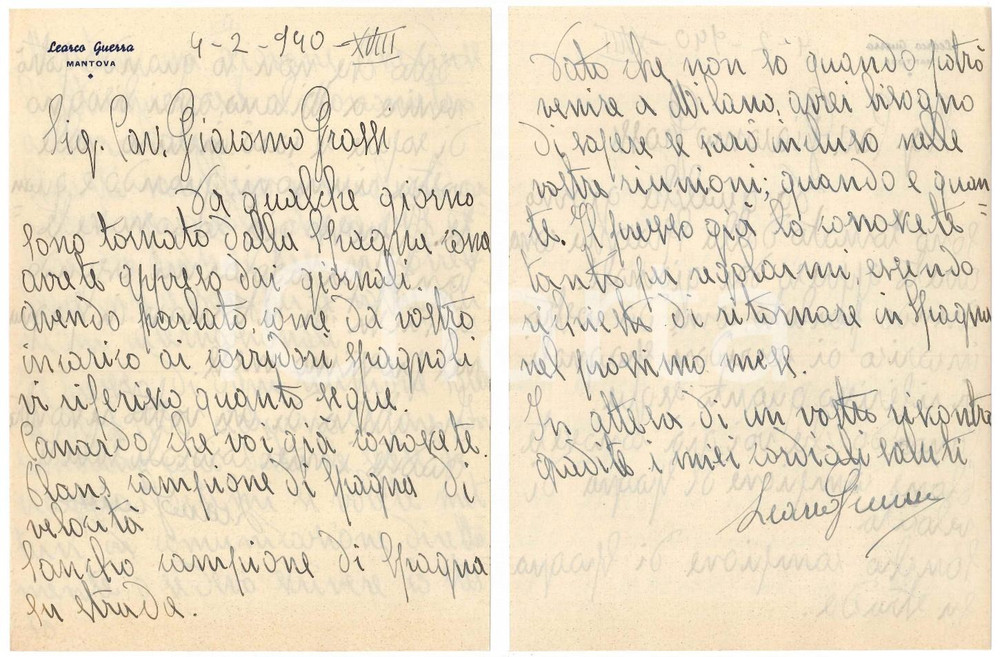 Learco Guerra
MANTOVA
4-2-940-XVIII
Sig. Cav. Giacomo Grassi
Da qualche giorno
sono tornato dalla Spagna come
avrete appreso dai giornali.
Avendo parlato come da vostro
incarico ai corridori spagnoli
vi riferisco quanto segue.
Canardo che voi già conoscete.
Plans campione di Spagna di
velocità
Sancho campione di Spagna
su strada.
Dato che non so quando potrò
venire a Milano, avrei bisogno
di sapere se sarò incluso nelle
vostre riunioni; quando e quan=
te. Il prezzo già lo conoscete
tanto per regolarmi, essendo
richiesto di ritornare in Spagna
nel prossimo mese.
In attesa di un vostro riscontro
gradite i miei cordiali saluti
Learco Guerra